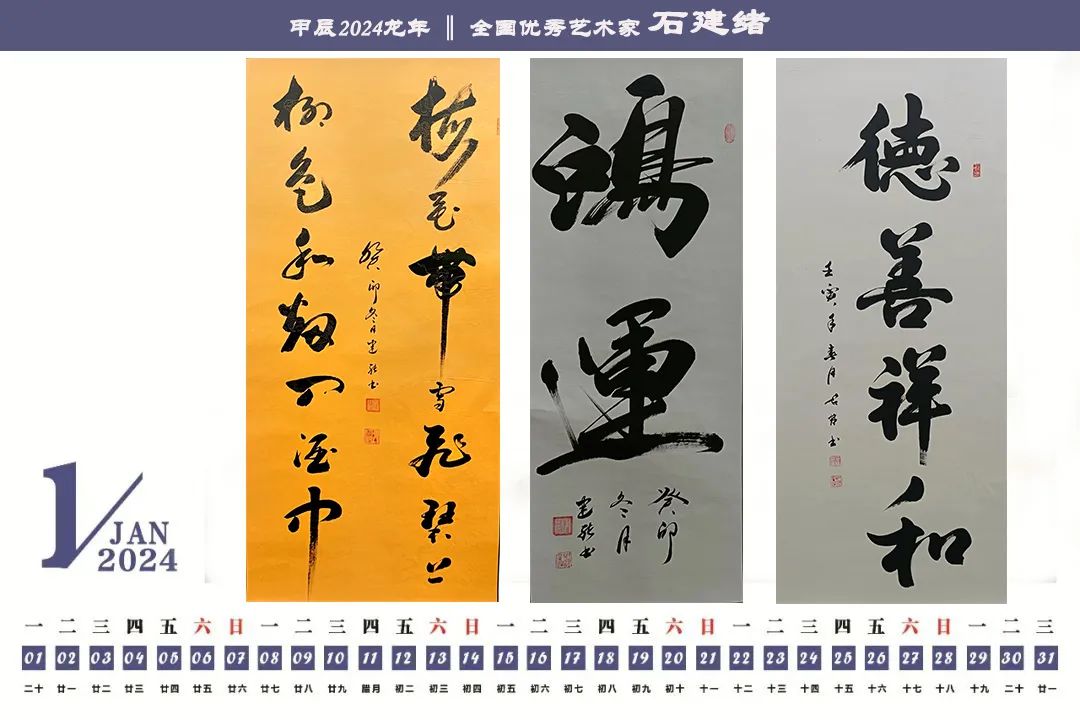 甲辰2024龙年 ‖ 全国优秀艺术家 石建绪
梅花帶雪飛琴上
柳色和烟入酒中
癸卯冬月建绪书
鴻運
癸卯
冬月
建绪书
德善祥和
壬寅年春月
1/JAN
2024
一 二 三 四 五 六 日 一 二 三 四 五 六 日 一 二 三 四 五 六 日 一 二 三 四 五 六 日 一 二 三
01 02 03 04 05 06 07 08 09 10 11 12 13 14 15 16 17 18 19 20 21 22 23 24 25 26 27 28 29 30 31
二十 廿一 廿二 廿三 廿四 廿五 廿六 廿七 廿八 廿九 腊月 初二 初三 初四 初五 初六 初七 初八 初九 初十 十一 十二 十三 十四 十五 十六 十七 十八 十九 二十 廿一